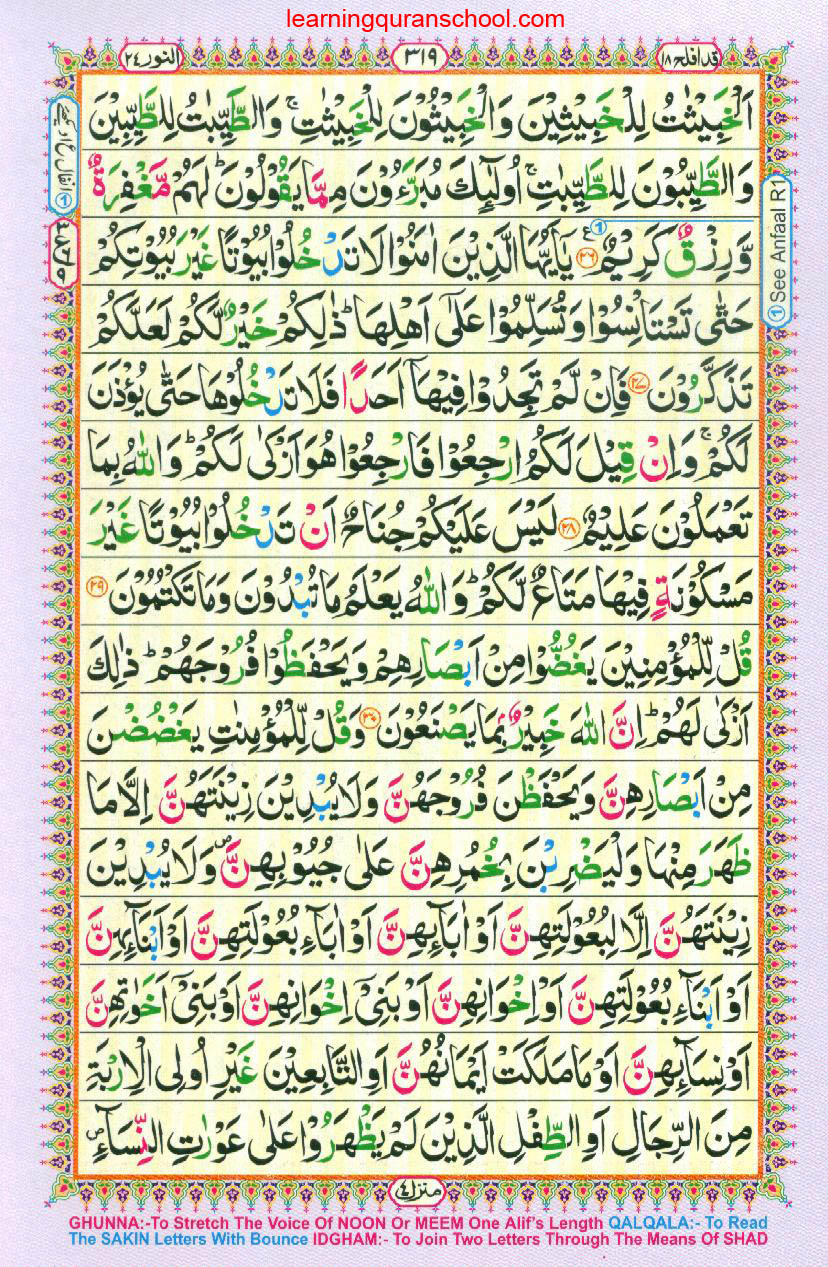 learningquranschool.com
النور ٢٤
٣١٩
قد افلح ١٨
اَلْخَبِيْثٰتُ لِلْخَبِيْثِيْنَ وَالْخَبِيْثُوْنَ لِلْخَبِيْثٰتِ ۚ وَالطَّيِّبٰتُ لِلطَّيِّبِيْنَ
وَالطَّيِّبُوْنَ لِلطَّيِّبٰتِ ۚ اُولٰٓئِكَ مُبَرَّءُوْنَ مِمَّا يَقُوْلُوْنَ ؕ لَهُمْ مَّغْفِرَةٌ
وَّرِزْقٌ كَرِيْمٌ ﴿٢٦﴾ ع ① يٰۤاَيُّهَا الَّذِيْنَ اٰمَنُوْا لَا تَدْخُلُوْا بُيُوْتًا غَيْرَ بُيُوْتِكُمْ
حَتّٰى تَسْتَاْنِسُوْا وَتُسَلِّمُوْا عَلٰٓى اَهْلِهَا ؕ ذٰلِكُمْ خَيْرٌ لَّكُمْ لَعَلَّكُمْ
تَذَكَّرُوْنَ ﴿٢٧﴾ فَاِنْ لَّمْ تَجِدُوْا فِيْهَاۤ اَحَدًا فَلَا تَدْخُلُوْهَا حَتّٰى يُؤْذَنَ
لَكُمْ ۚ وَاِنْ قِيْلَ لَكُمُ ارْجِعُوْا فَارْجِعُوْا هُوَ اَزْكٰى لَكُمْ ؕ وَاللّٰهُ بِمَا
تَعْمَلُوْنَ عَلِيْمٌ ﴿٢٨﴾ لَيْسَ عَلَيْكُمْ جُنَاحٌ اَنْ تَدْخُلُوْا بُيُوْتًا غَيْرَ
مَسْكُوْنَةٍ فِيْهَا مَتَاعٌ لَّكُمْ ؕ وَاللّٰهُ يَعْلَمُ مَا تُبْدُوْنَ وَمَا تَكْتُمُوْنَ ﴿٢٩﴾
قُلْ لِّلْمُؤْمِنِيْنَ يَغُضُّوْا مِنْ اَبْصَارِهِمْ وَيَحْفَظُوْا فُرُوْجَهُمْ ؕ ذٰلِكَ
اَزْكٰى لَهُمْ ؕ اِنَّ اللّٰهَ خَبِيْرٌۢ بِمَا يَصْنَعُوْنَ ﴿٣٠﴾ وَقُلْ لِّلْمُؤْمِنٰتِ يَغْضُضْنَ
مِنْ اَبْصَارِهِنَّ وَيَحْفَظْنَ فُرُوْجَهُنَّ وَلَا يُبْدِيْنَ زِيْنَتَهُنَّ اِلَّا مَا
ظَهَرَ مِنْهَا وَلْيَضْرِبْنَ بِخُمُرِهِنَّ عَلٰى جُيُوْبِهِنَّ ۪ وَلَا يُبْدِيْنَ
زِيْنَتَهُنَّ اِلَّا لِبُعُوْلَتِهِنَّ اَوْ اٰبَآئِهِنَّ اَوْ اٰبَآءِ بُعُوْلَتِهِنَّ اَوْ اَبْنَآئِهِنَّ
اَوْ اَبْنَآءِ بُعُوْلَتِهِنَّ اَوْ اِخْوَانِهِنَّ اَوْ بَنِيْۤ اِخْوَانِهِنَّ اَوْ بَنِيْۤ اَخَوٰتِهِنَّ
اَوْ نِسَآئِهِنَّ اَوْ مَا مَلَكَتْ اَيْمَانُهُنَّ اَوِ التّٰبِعِيْنَ غَيْرِ اُولِى الْاِرْبَةِ
مِنَ الرِّجَالِ اَوِ الطِّفْلِ الَّذِيْنَ لَمْ يَظْهَرُوْا عَلٰى عَوْرٰتِ النِّسَآءِ ۪
① See Anfaal R1
منزل ٤
GHUNNA:-To Stretch The Voice Of NOON Or MEEM One Alif's Length QALQALA:- To Read
The SAKIN Letters With Bounce IDGHAM:- To Join Two Letters Through The Means Of SHAD